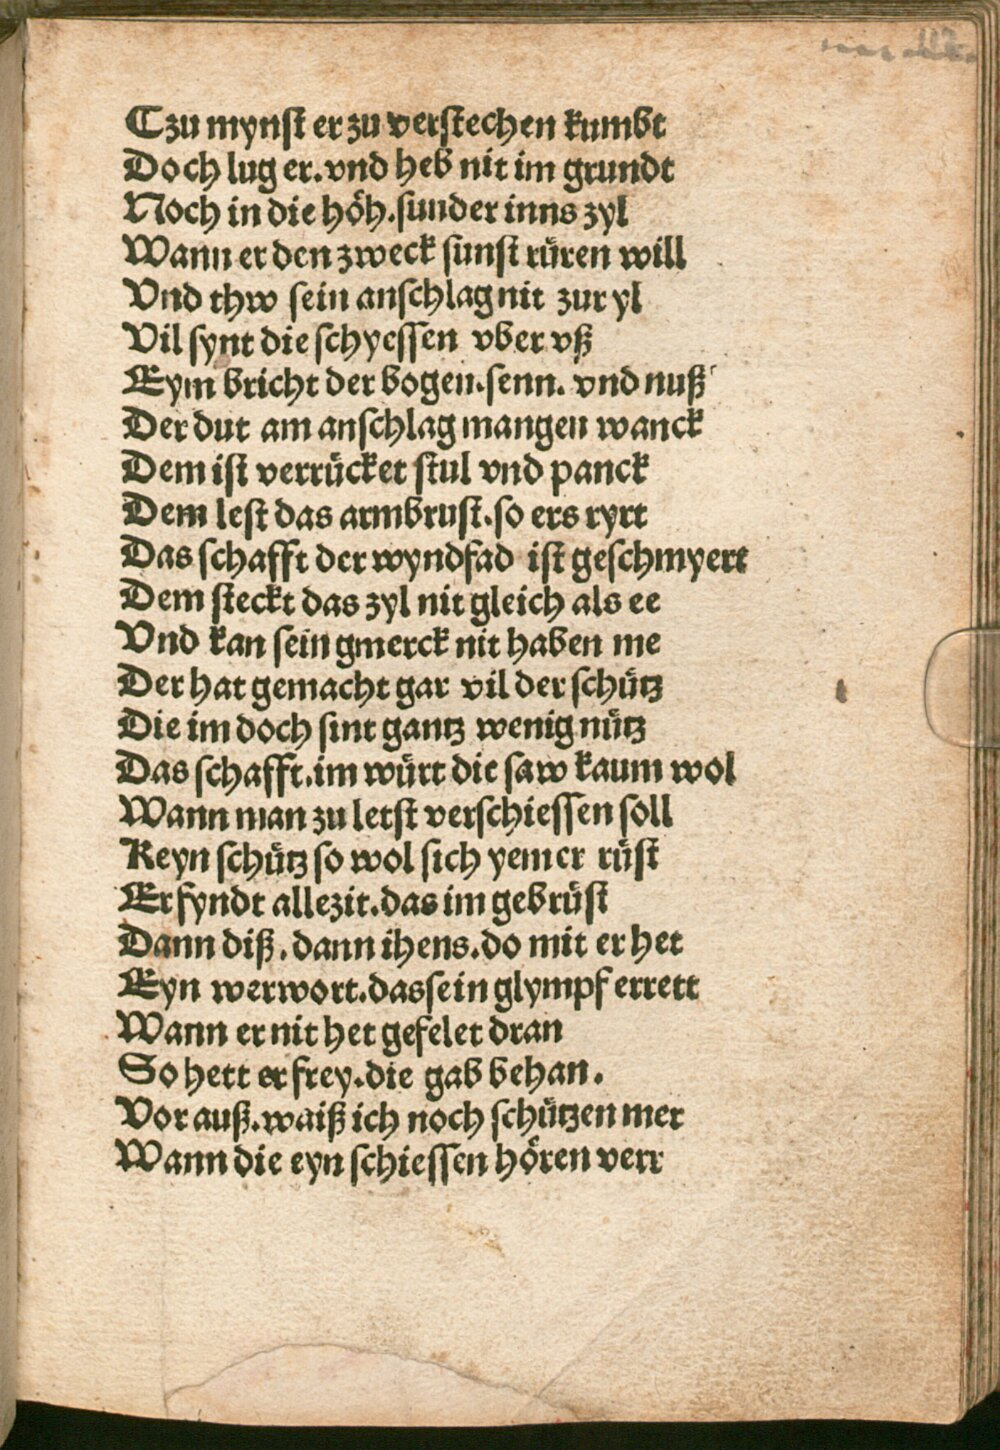 Czu mynst er zu verstechen kumbt
Doch lug er. vnd heb nit im grundt
Noch in die höh. sunder inns zyl
Wann er den zweck sunst rüren will
Vnd thw sein anschlag nit zur yl
Vil synt die schyessen vber vß
Eym bricht der bogen. senn. vnd nuß
Der dut am anschlag mangen wanck
Dem ist verrücket stul vnd panck
Dem lest das armbrust. so ers ryrt
Das schafft der wyndfad ist geschmyert
Dem steckt das zyl nit gleich als ee
Vnd kan sein gmerck nit haben me
Der hat gemacht gar vil der schütz
Die im doch sint gantz wenig nütz
Das schafft. im würt die saw kaum wol
Wann man zu letst verschiessen soll
Keyn schütz so wol sich yemer rüst
Er fyndt allezit. das im gebrüst
Dann diß. dann ihens. do mit er het
Eyn werwort. das sein glympf errett
Wann er nit het gefelet dran
So hett er frey. die gab behan.
Vor auß. waiß ich noch schützen mer
Wann die eyn schiessen hören verr